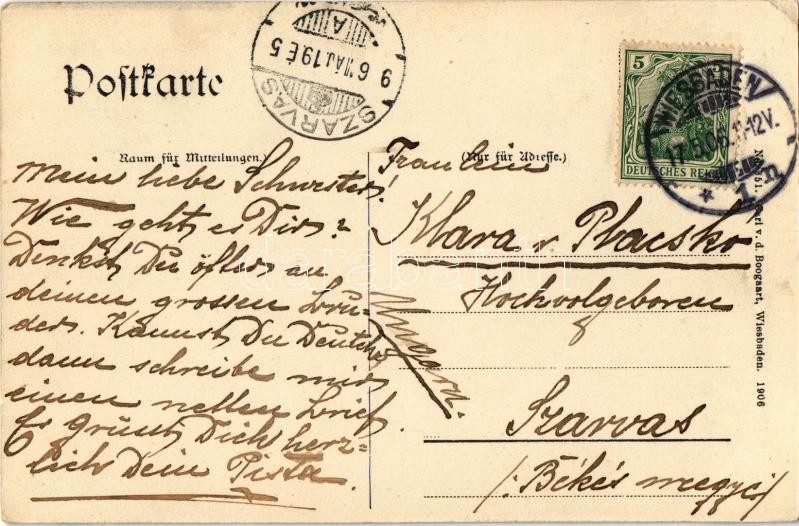 Postkarte
SZARVAS
906 MÁJ. 19 É 5
5
DEUTSCHES REICH
WIESBADEN
17.5.06. 11-12V.
* 1 n
Raum für Mitteilungen.)
(Nur für Adresse.)
Mein liebe Schwester!
Wie geht es Dir?
Denkst Du öfters an
deinen grossen Bru-
der. Kannst Du Deutsch
dann schreibe mir
einen netten Brief.
Es grüsst Dich herz-
lich Dein Pista
Fraulein
Klara v Placskó
Hochvolgeboren
Ungarn.
Szarvas
/: Békés megye :/
51. Carl v. d. Boogaart, Wiesbaden. 1906
darabanth